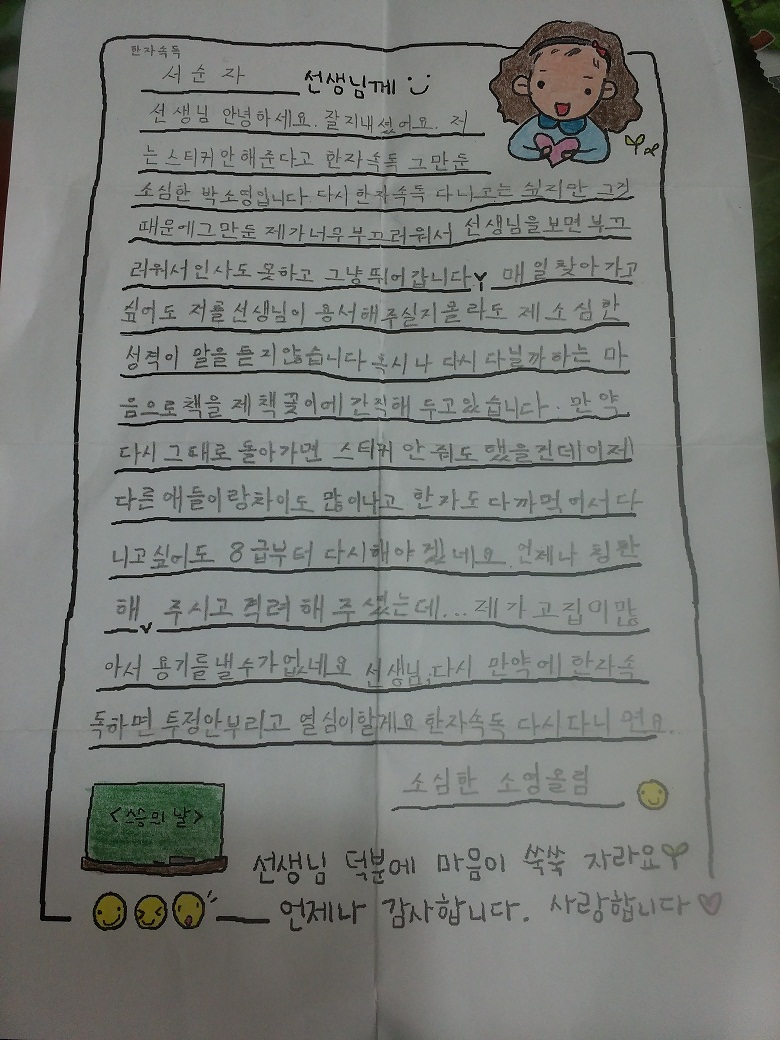 한자속독
서순자 선생님께
선생님 안녕하세요. 잘지내셨어요. 저
는 스티커 안해준다고 한자속독 그만둔
소심한 박소영입니다. 다시 한자속독 다니고는 싶지만 그것
때문에 그만둔 제가 너무 부끄러워서 선생님을 보면 부끄
러워서 인사도 못하고 그냥 뛰어갑니다. 매일 찾아가고
싶어도 저를 선생님이 용서해주실지 몰라도 제 소심한
성격이 말을 듣지 않습니다 혹시나 다시 다닐까 하는 마
음으로 책을 제 책꽂이에 간직해 두고 있습니다. 만약
다시 그대로 돌아가면 스티커 안 줘도 됐을건데 이제
다른 애들이랑 차이도 많이나고 한자도 다 까먹어서 다
니고 싶어도 8급부터 다시해야 겠네요. 언제나 칭찬
해 주시고 격려해 주셨는데... 제가 고집이 많
아서 용기를 낼 수가 없네요 선생님, 다시 만약에 한자속
독하면 투정안부리고 열심히할게요 한자속독 다시다니면요..
소심한 소영올림
<스승의 날>
선생님 덕분에 마음이 쑥쑥 자라요
언제나 감사합니다. 사랑합니다